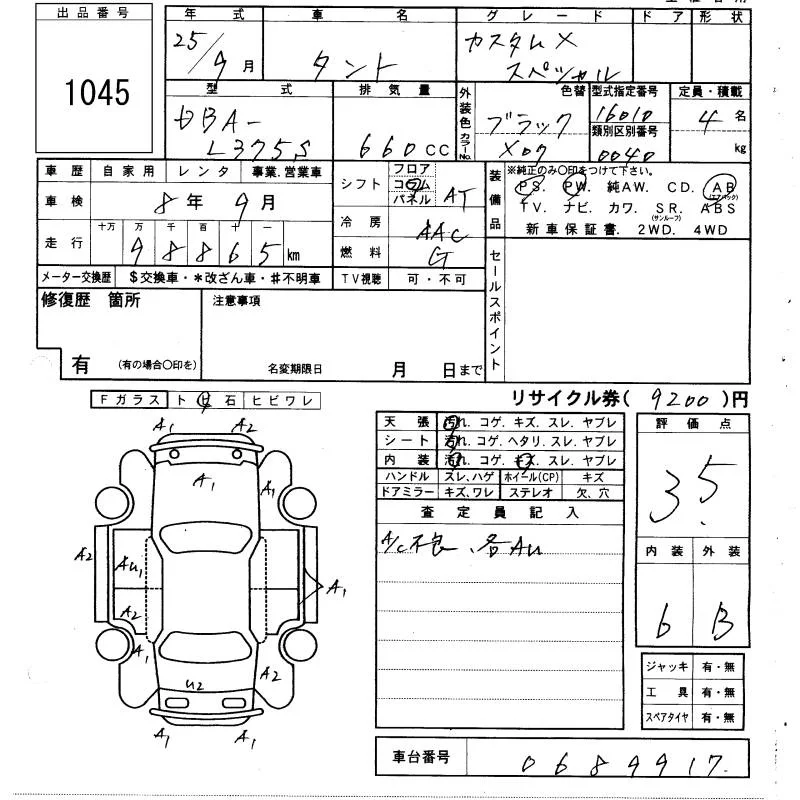 出品番号
1045
年式 車名 グレード ドア 形状
25/9月 タント カスタムX スペシャル
型式 排気量 外装色 色替 カラーNo. 型式指定番号 定員・積載
DBA-L375S 660CC ブラック X07 16010 4名
類別区別番号
0040 kg
車歴 自家用 レンタ 事業.営業車
車検 8年9月
走行 十万 万 千 百 十 一
98865km
メーター交換歴 $交換車・*改ざん車・#不明車
シフト フロア コラム パネル AT
冷房 AAC
燃料 G
TV視聴 可・不可
装備品 ※純正のみ〇印をつけて下さい。
PS. PW. 純AW. CD. AB(エアバック)
TV. ナビ. カワ. SR.(サンルーフ) ABS
新車保証書. 2WD. 4WD
セールスポイント
修復歴 箇所
有 (有の場合〇印を)
注意事項
名変期限日 月 日まで
リサイクル券( 9200 )円
Fガラス ト ビ 石 ヒビワレ
A1 A2
A1 A1
A2 AU1 A2 A1
A1 A2
U2
A1 A1
天張 汚れ. コゲ. キズ. スレ. ヤブレ
シート 汚れ. コゲ. ヘタリ. スレ. ヤブレ
内装 汚れ. コゲ. キズ. スレ. ヤブレ
ハンドル スレ、ハゲ ホイール(CP) キズ
ドアミラー キズ、ワレ ステレオ 欠、穴
査定員記入
A/C不良、各AU
評価点
3.5
内装 外装
6 B
ジャッキ 有・無
工具 有・無
スペアタイヤ 有・無
車台番号 0689917